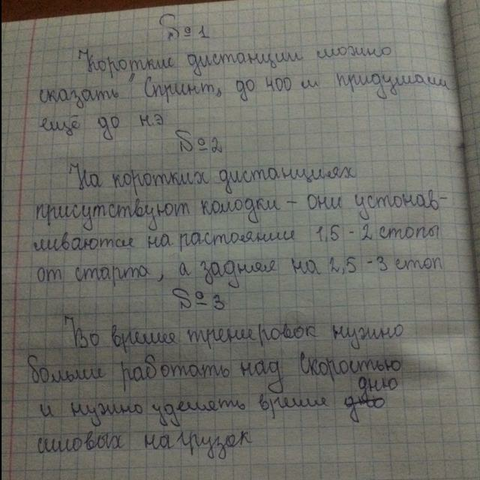 №1
Короткие дистанции можно
сказать "Спринт„ до 400 м придумали
ещё до нэ
№2
На коротких дистанциях
присутствуют колодки – они устонав-
ливаются на растоянии 1,5 - 2 стопы
от старта, а задняя на 2,5 - 3 стоп
№3
Во время тренеровок нужно
больше работать над скоростью
и нужно уделять время дню
силовых нагрузок